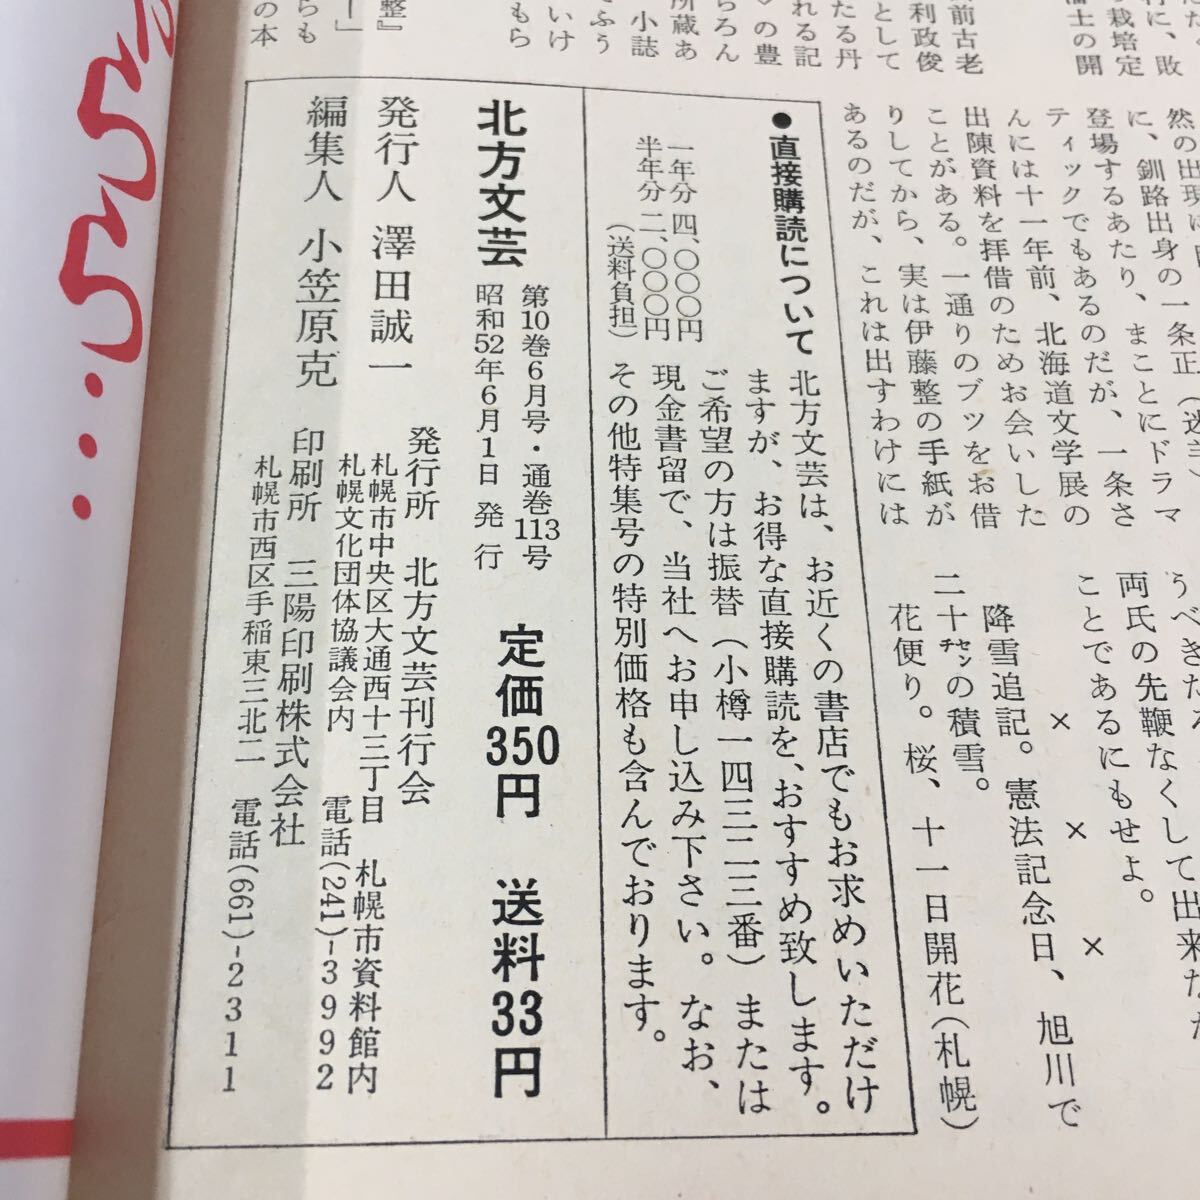 然の出現に
に、釧路出身の一条正
登場するあたり、まことにドラマ
ティックでもあるのだが、一条さ
んには十一年前、北海道文学展の
出陳資料を拝借のためお会いした
ことがある。一通りのブツをお借
りしてから、実は伊藤整の手紙が
あるのだが、これは出すわけには
両氏の先鞭なくして出来な
ことであるにもせよ。
× × ×
降雪追記。憲法記念日、旭川で
二十センチの積雪。
花便り。桜、十一日開花（札幌）
前古老
利政俊
として
たる丹
れる記
の豊
ろん
所蔵あ
小誌
ふう
いけ
もら
整』
らも
の本
●直接購読について
一年分 四、〇〇〇円
半年分 二、〇〇〇円
（送料負担）
北方文芸は、お近くの書店でもお求めいただけ
ますが、お得な直接購読を、おすすめ致します。
ご希望の方は振替（小樽一四三二三番）または
現金書留で、当社へお申し込み下さい。なお、
その他特集号の特別価格も含んでおります。
北方文芸 第10巻6月号・通巻113号
昭和52年6月1日発行
定価350円 送料33円
発行人 澤田誠一
編集人 小笠原克
発行所 北方文芸刊行会
札幌市中央区大通西十三丁目 札幌市資料館内
札幌文化団体協議会内 電話(241)-3992
印刷所 三陽印刷株式会社
札幌市西区手稲東三北二 電話(661)-2311